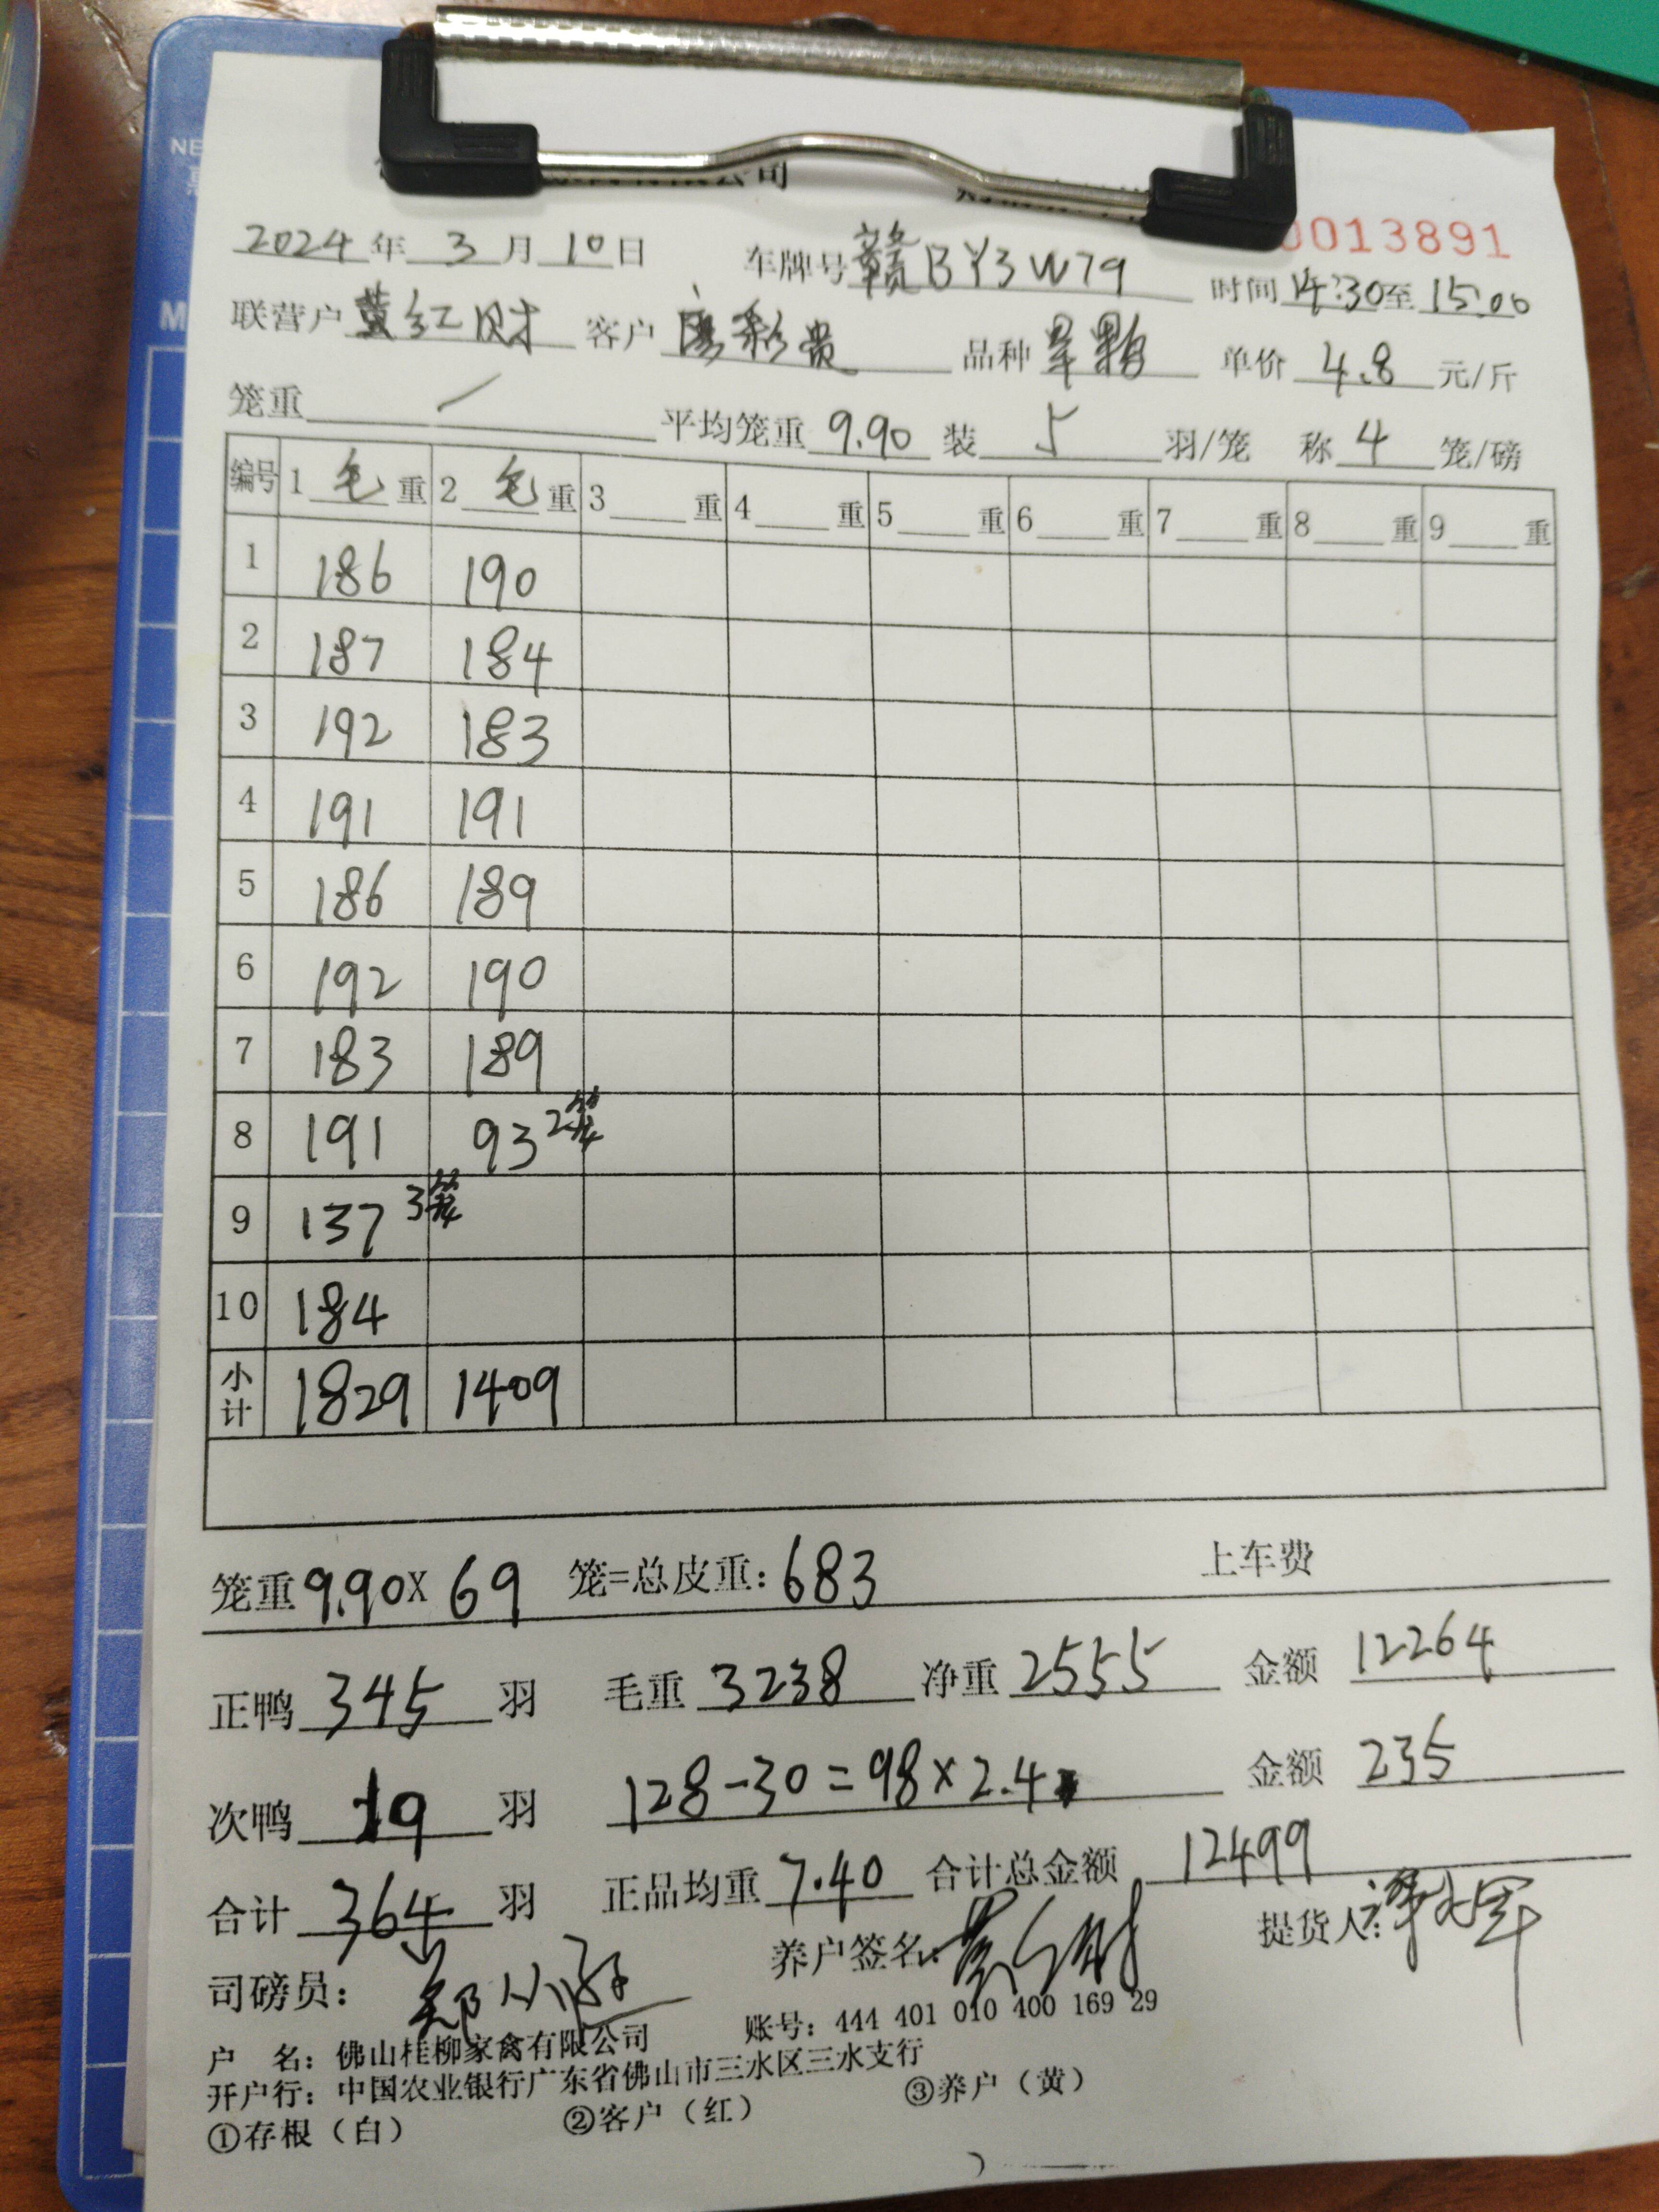 公司
0013891
2024年3月10日 车牌号赣BY3W79 时间14:30至15:00
联营户黄红财 客户廖彩贵 品种 单价4.8元/斤
笼重 / 平均笼重9.90装5羽/笼 称4笼/磅
编号 1毛重 2毛重 3重 4重 5重 6重 7重 8重 9重
1 186 190
2 187 184
3 192 183
4 191 191
5 186 189
6 192 190
7 183 189
8 191 93 2笼
9 137 3笼
10 184
小计 1829 1409
笼重9.90X69笼=总皮重:683 上车费
正鸭345羽 毛重3238净重2555 金额12264
次鸭19羽 128-30=98×2.4 金额235
合计364羽 正品均重7.40合计总金额12499
司磅员: 养户签名: 提货人:
户 名:佛山桂柳家禽有限公司 账号:444 401 010 400 169 29
开户行:中国农业银行广东省佛山市三水区三水支行
①存根（白） ②客户（红） ③养户（黄）